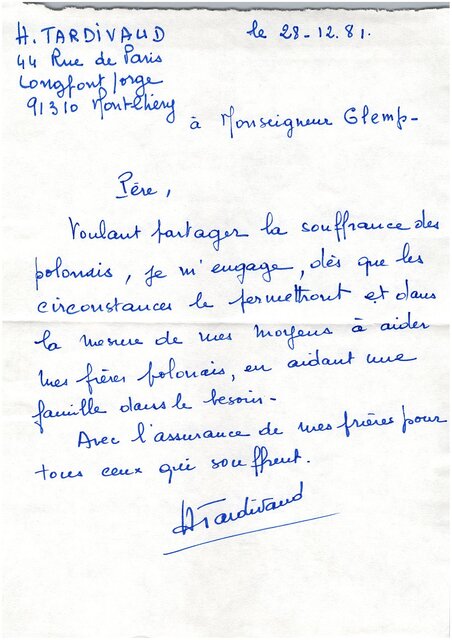 H. TARDIVAUD
le 28-12.81.
44 Rue de Paris
Longpont/orge
91310 Montlhéry
à Monseigneur Glemp-
Père,
Voulant partager la souffrance des
polonais, je m'engage, dès que les
circonstances le permettront et dans
la mesure de mes moyens à aider
mes frères polonais, en aidant une
famille dans le besoin-
Avec l'assurance de mes frères pour
tous ceux qui souffrent.
HTardivaud